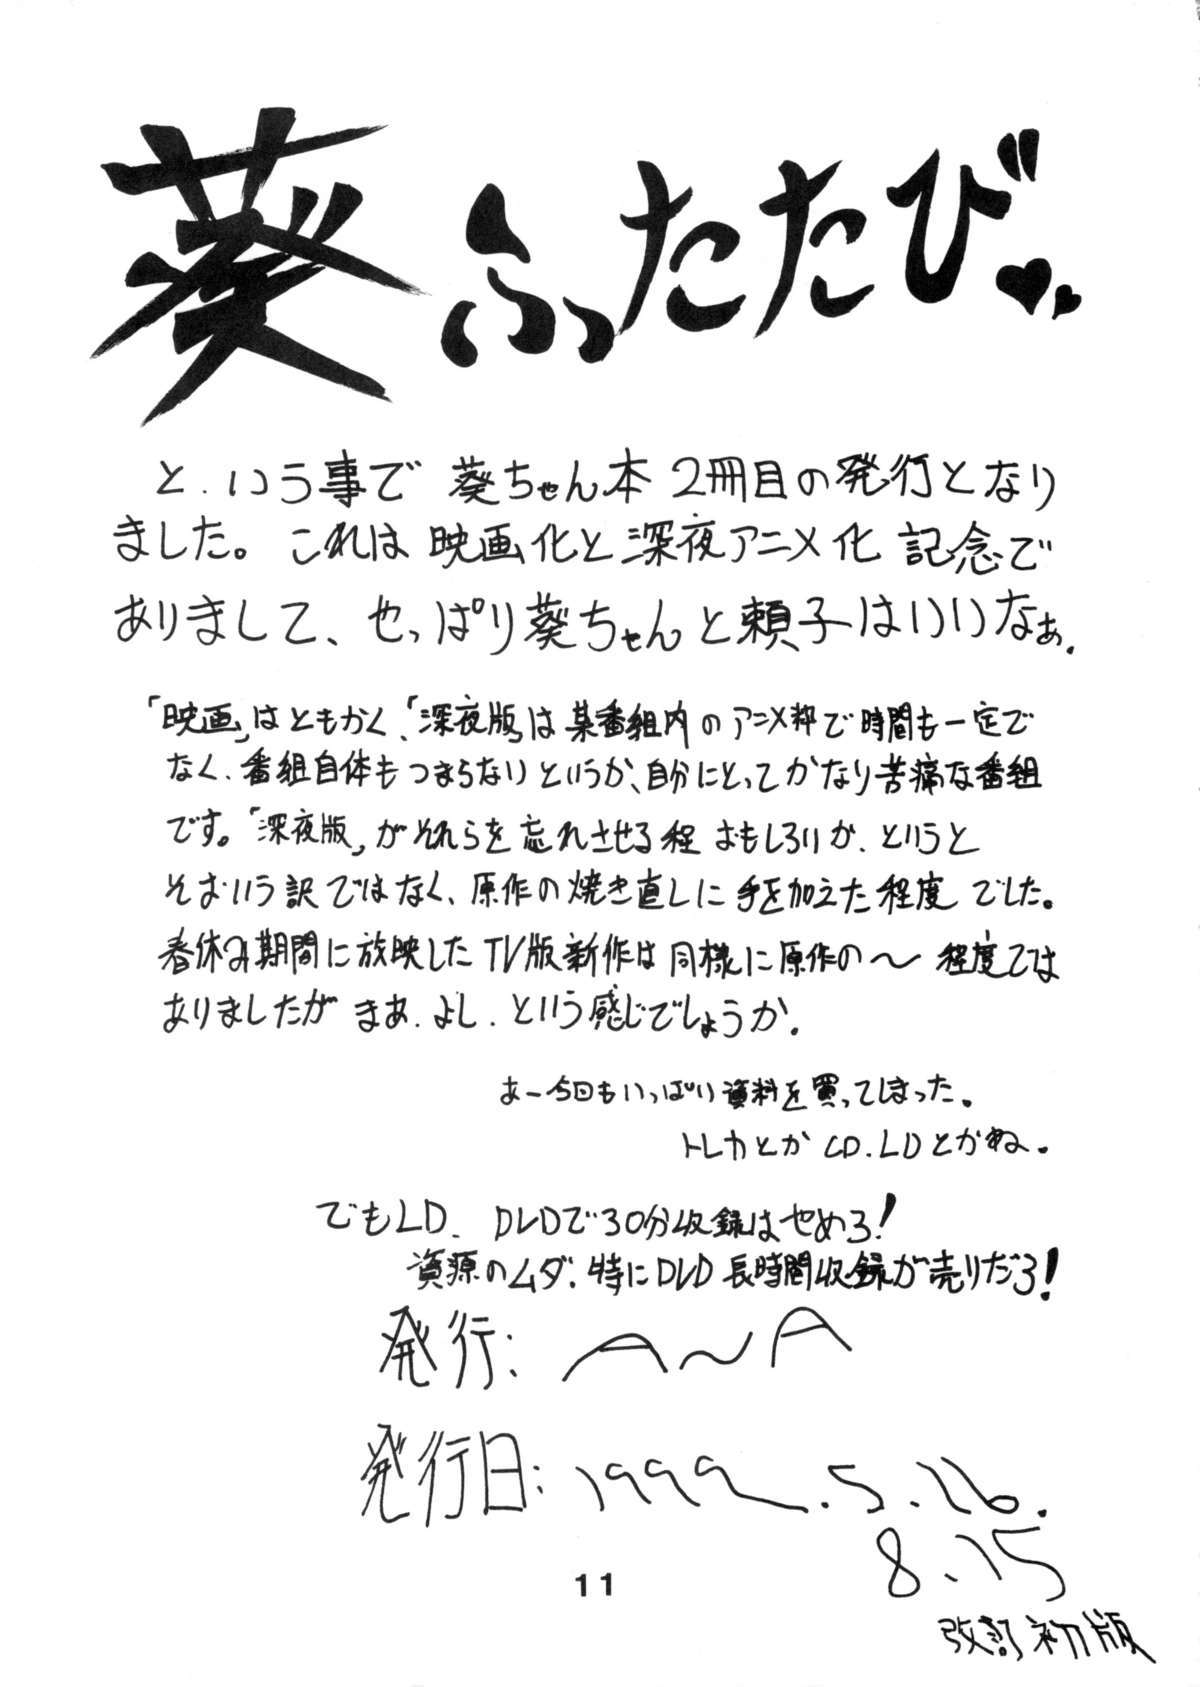 葵ふたたび
と、いう事で葵ちゃん本2冊目の発行となり
ました。これは映画化と深夜アニメ化記念で
ありまして、やっぱり葵ちゃんと頼子はいいなぁ.
「映画」はともかく、「深夜版」は某番組内のアニメ枠で時間も一定で
なく、番組自体もつまらないというか、自分にとってかなり苦痛な番組
です。「深夜版」がそれらを忘れさせる程おもしろいか、というと
そおいう訳ではなく、原作の焼き直しに手を加えた程度でした。
春休み期間に放映したTV版新作は同様に原作の〜程度では
ありましたがまあ、よし、という感じでしょうか.
あー今回もいっぱい資料を買ってしまった。
トレカとかCD.LDとかね。
でもLD、DVDで30分収録はやめろ!
資源のムダ、特にDVD長時間収録が売りだろ!
発行:A〜A
発行日:1999.5.16.
8.15
改訂初版
11